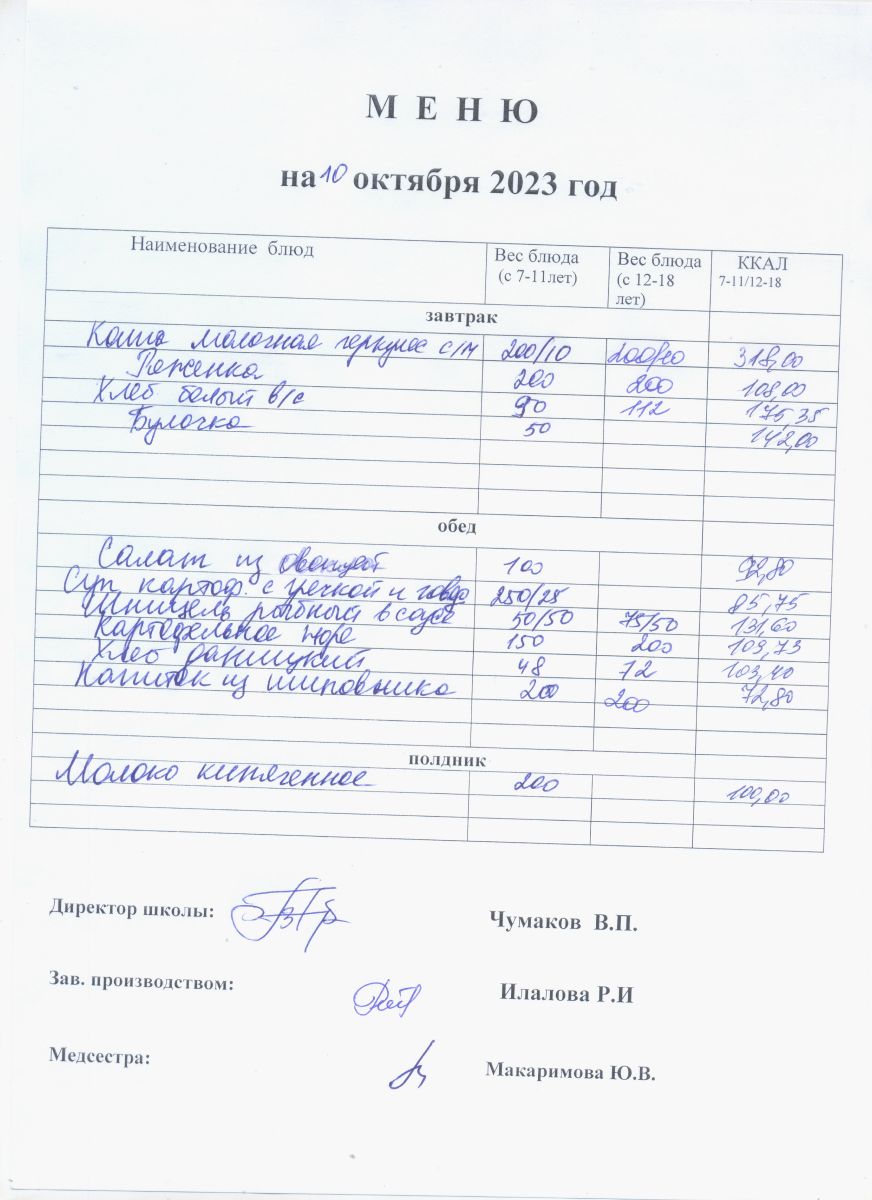 М Е Н Ю
на 10 октября 2023 год
Наименование блюд Вес блюда (с 7-11лет) Вес блюда (с 12-18 лет) ККАЛ 7-11/12-18
завтрак
Каша молочная геркулес с/м 200/10 200/10 318,00
Ряженка 200 200 108,00
Хлеб белый в/с 90 112 175,35
Булочка 50 142,00
обед
Салат из овощей 100 92,80
Суп картоф. с гречкой и 250/25 85,75
Шницель рыбный в соусе 50/50 75/50 131,60
Картофельное пюре 150 200 109,73
Хлеб даницкий 48 72 103,40
Напиток из шиповника 200 200 72,80
полдник
Молоко кипяченное 200 100,00
Директор школы: Чумаков В.П.
Зав. производством: Илалова Р.И
Медсестра: Макаримова Ю.В.